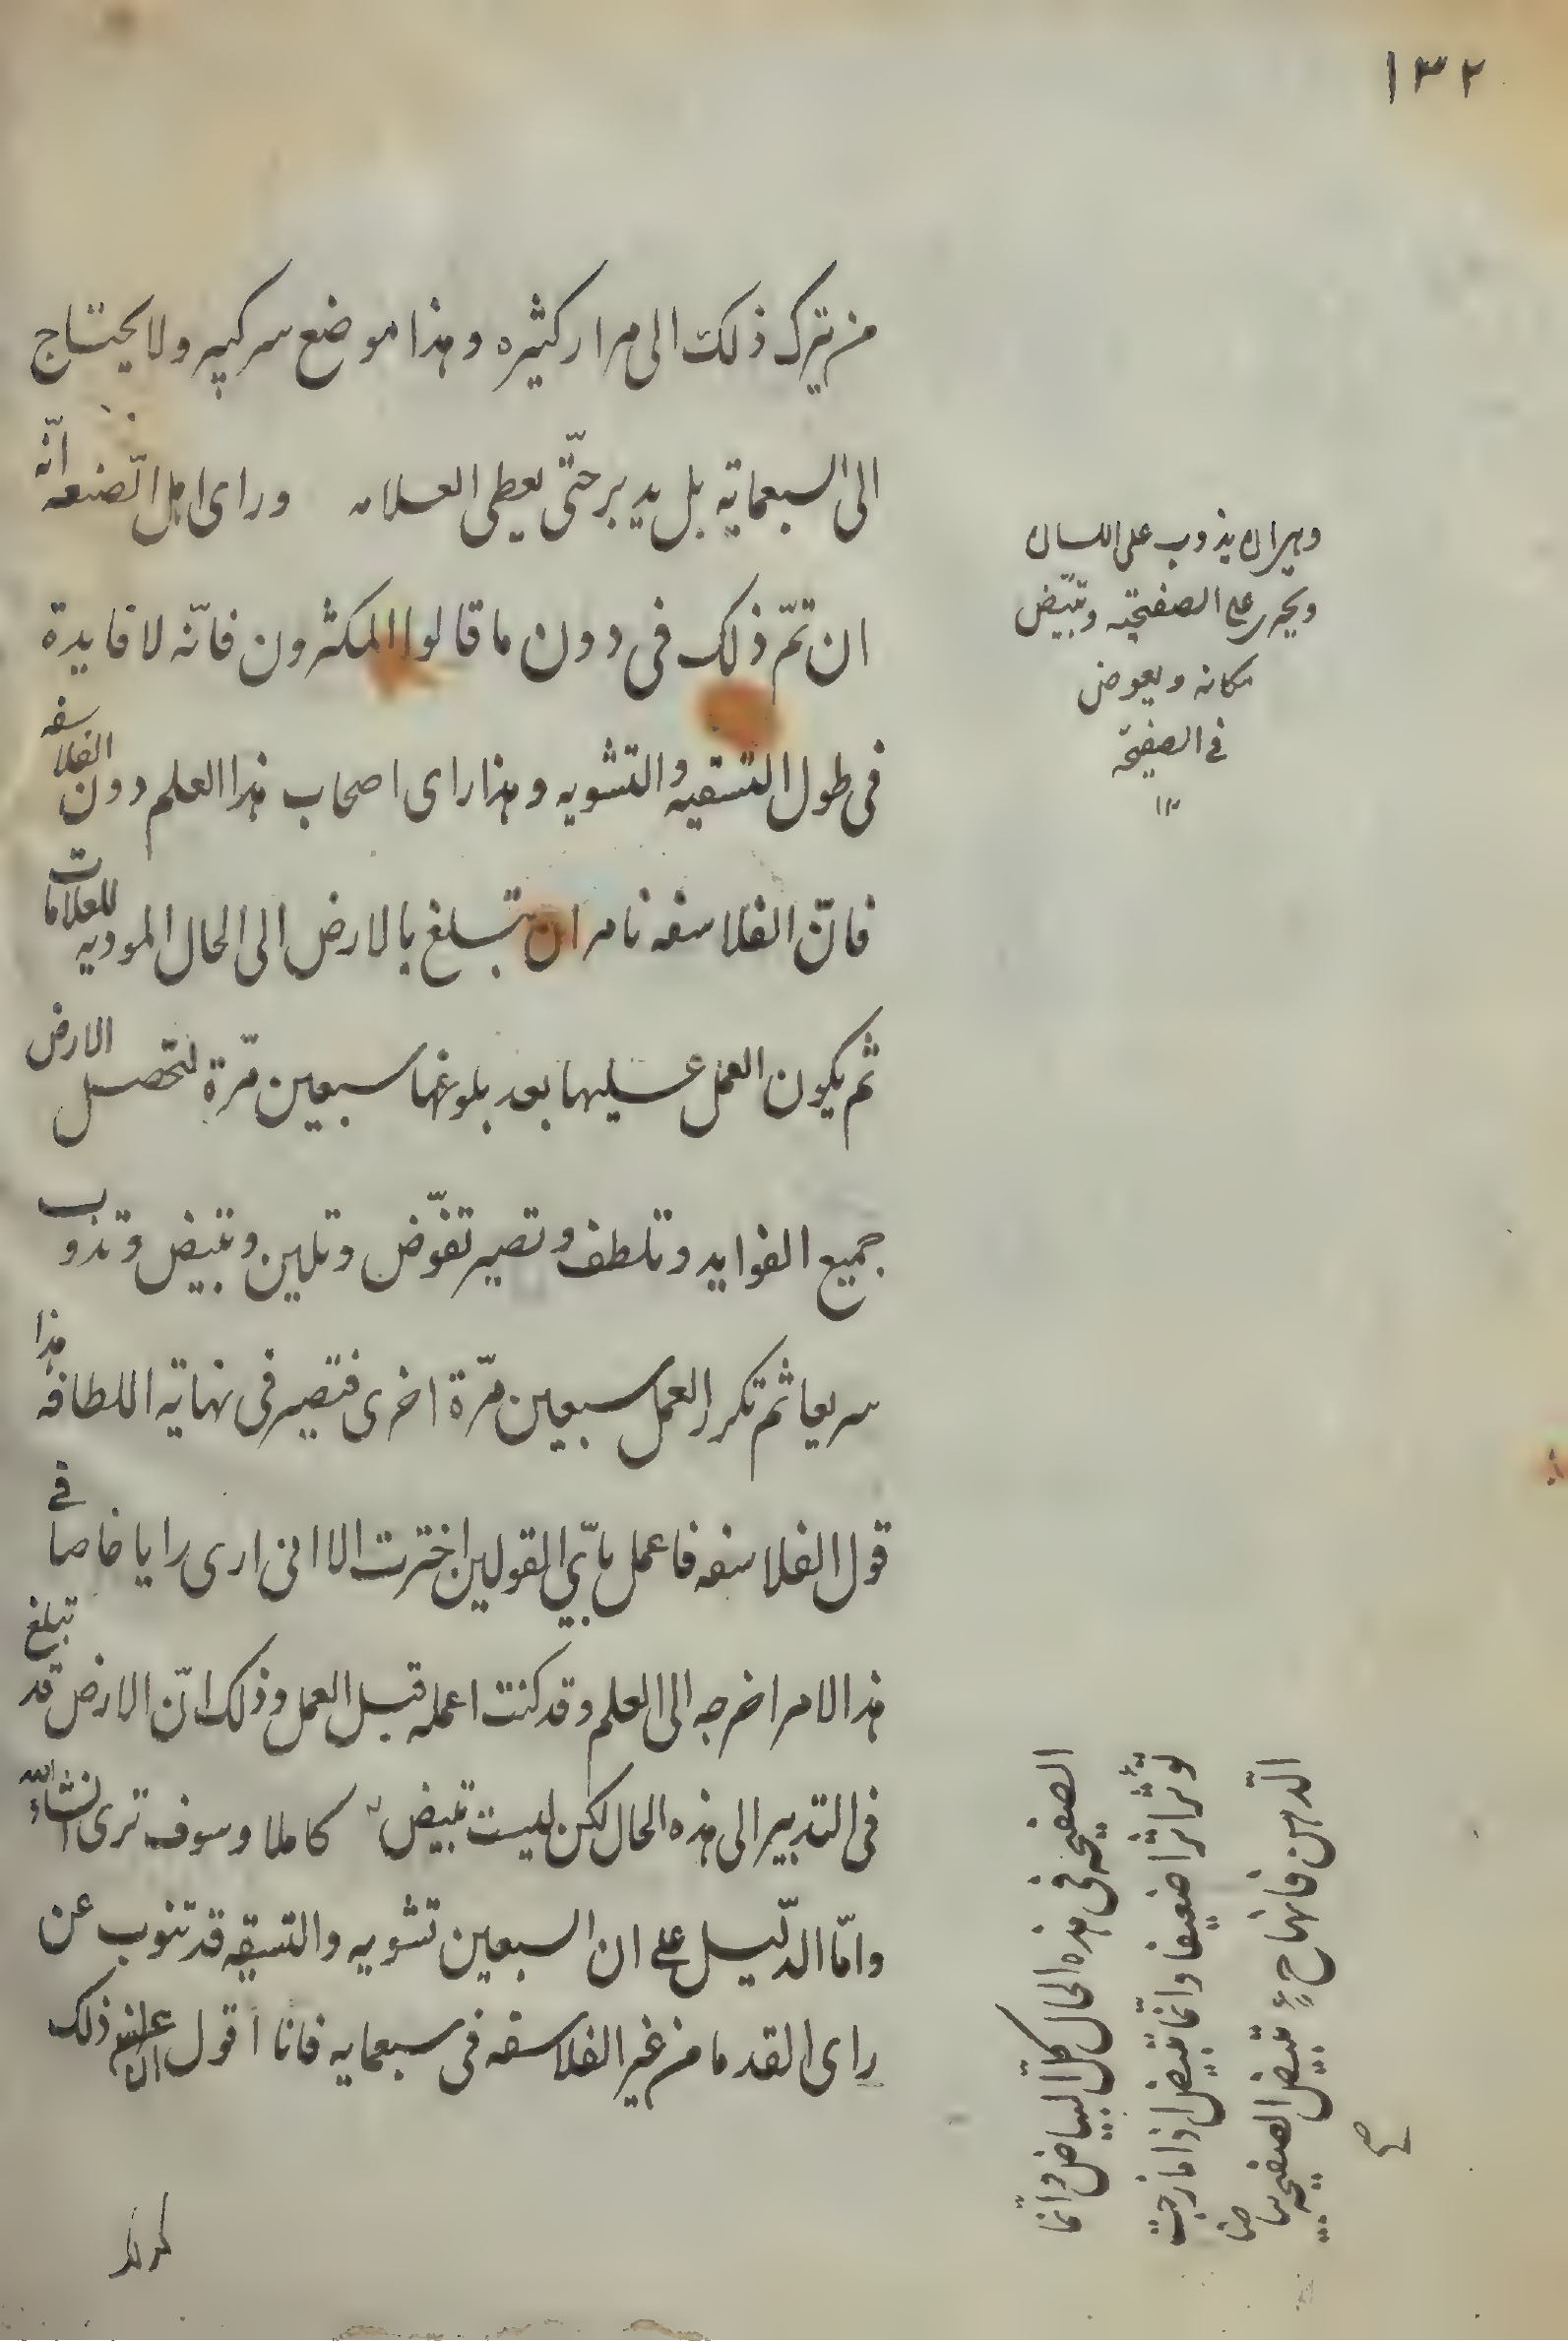 ١٣٢
من يترك ذلك الى مرار كثيره وهذا موضع سركبير ولا يحتاج
الى السبعماية بل يدبر حتّى يعطى العلامه وراى اهل الصّنعه انّه
ان تمّ ذلك فى دون ما قالوا المكثرون فانّه لا فايدة
فى طول التسقيه والتشويه وهذا راى اصحاب هذا العلم دون الفلاسفه
فانّ الفلاسفه تامر ان تبلغ بالارض الى الحال الموديه للعلامات
ثم يكون العمل عليها بعد بلوغها سبعين مرّة لتحصل الارض
جميع الفوايد وتلطف وتصير تفوّض وتلين وتبيض وتذوب
سريعا ثم تكرر العمل سبعين مرّة اخرى فتصير فى نهاية اللطافه هذا
قول الفلاسفه فاعمل باىّ القولين اخترت الا انى ارى رايا خاصا فى
هذا الامر اخرجه الى العلم وقد كنت اعمله قبل العمل وذلك انّ الارض قد تبلغ
فى التدبير الى هذه الحال لكن ليست تبيض كاملا وسوف ترى انشاء اللّه
وامّا الدّليل على ان السبعين تشويه والتسقيه قد تنوب عن
راى القدما من غير الفلاسفه فى سبعمايه فانا اقول ان ذلك
يذوب على اللسان
ويجرى على الصفيحة وتبيّض
مكانه ويعوض
فى الصفيحة
١٢
الصفيحه فى هذه الحال كلّ البياض وانّما
تؤثر اثرا ضعيفا وانّما تبيض اذا مازجت
الدّهن فانها ح تبيض الصفيحه بياضا
صح